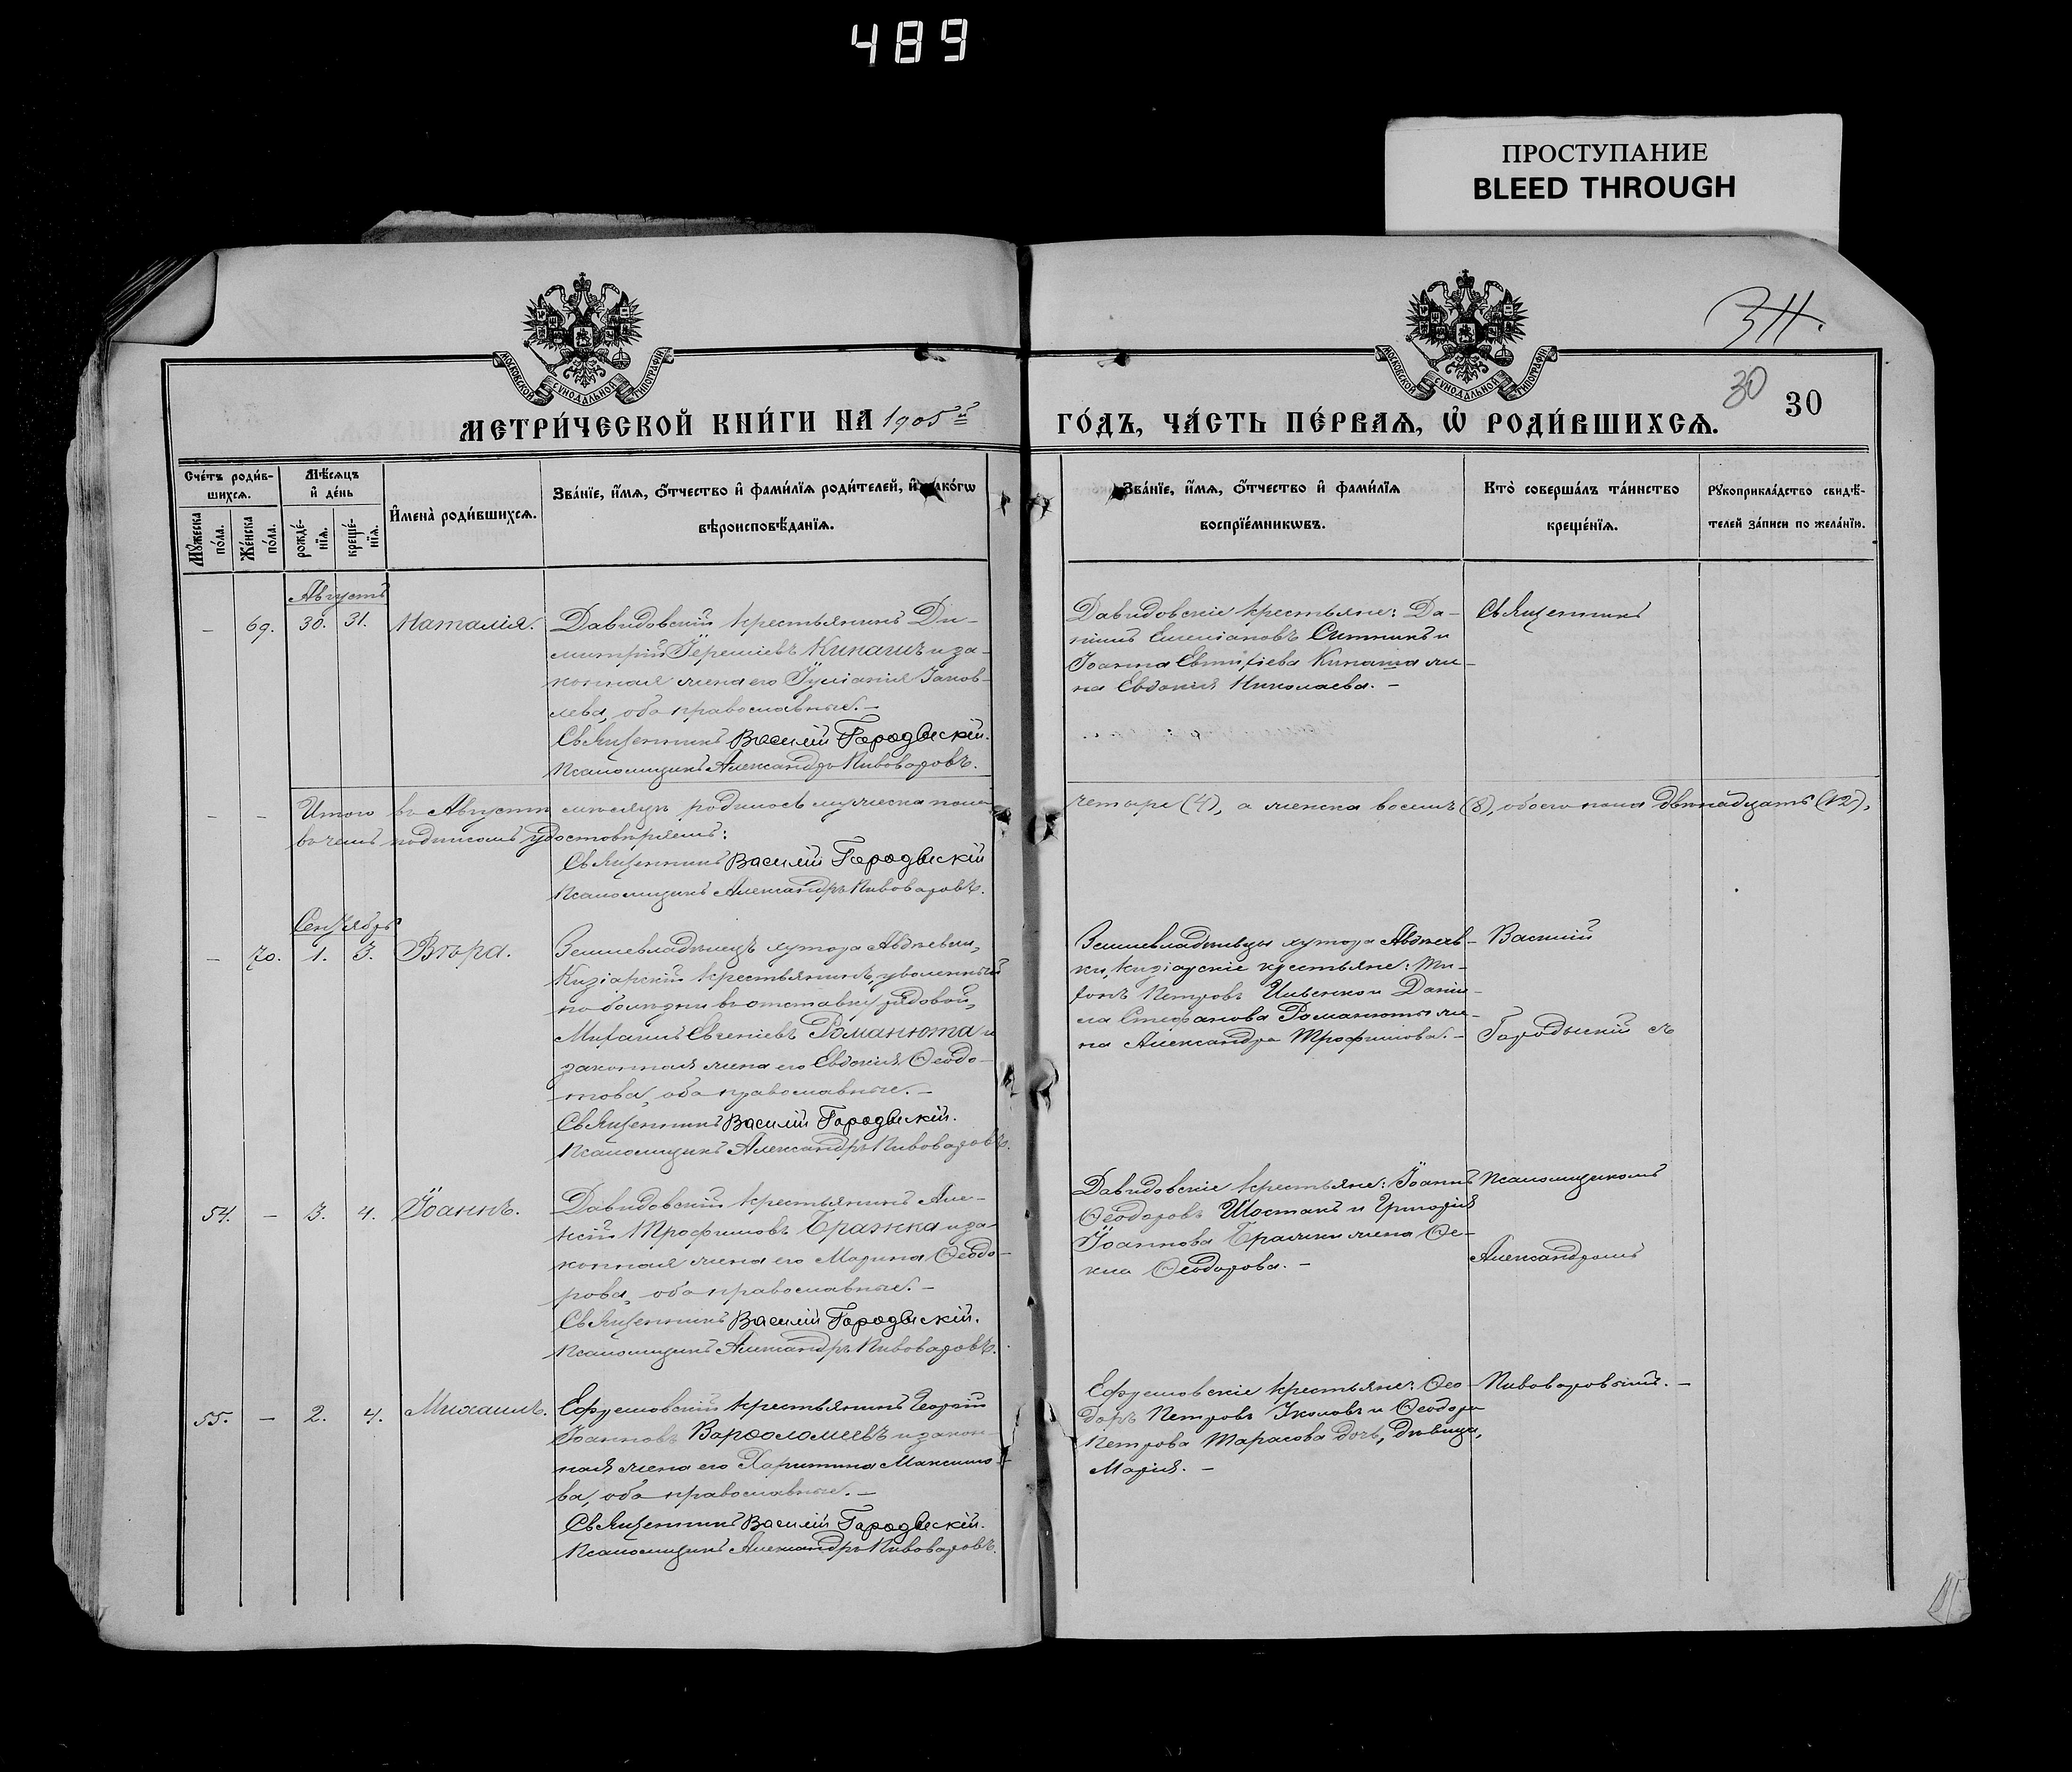 489
ПРОСТУПАНИЕ
BLEED THROUGH
МОСКОВСКОЙ СУНОДАЛЬНОЙ ТИПОГРАФІИ
МОСКОВСКОЙ СУНОДАЛЬНОЙ ТИПОГРАФІИ
30
30
МЕТРИ́ЧЕСКОЙ КНИ́ГИ НА 1905й
ГО́ДЪ, ЧА́СТЬ ПЕ́РВАѦ, Ѡ҆ РОДИ́ВШИХСѦ.
Сче́тъ роди́в-
шихсѧ.
Мѣ́сѧцъ
и҆ де́нь
Мꙋ́жеска
по́ла.
Же́нска
по́ла.
рожде́-
нїѧ.
креще́-
нїѧ.
И҆мена̀ роди́вшихсѧ.
Зва́нїе, и҆́мѧ, ѻ҆́тчество и҆ фами́лїѧ роди́телей, и҆ како́гѡ
вѣроисповѣ́данїѧ.
Зва́нїе, и҆́мѧ, ѻ҆́тчество и҆ фами́лїѧ
воспрїе́мникѡвъ.
Кто̀ соверша́лъ та́инство
креще́нїѧ.
Рꙋкоприкла́дство свидѣ́-
телей за́писи по жела́нїю.
Августъ
– 69. 30. 31. Наталія.
Давидовскій крестьянинъ Ди-
митрій Іереміевъ Кинашъ и за-
конная жена его Іуліанія Іаков-
лева, оба православные. –
Священникъ Василій Городыскій.
Псаломщикъ Александръ Пивоваровъ.
Давидовскіе крестьяне: Да-
ніилъ Ситникъ и
Іоанна Евѳиміева Кинаша же-
на Евдокія Николаева. –
Священникъ
– – Итого въ Августѣ мѣсяцѣ родилось мужеска пола четыре (4), а женска восемь (8), обоего пола двѣнадцать (12),
въ чемъ подписомъ удостовѣряемъ:
Священникъ Василій Городыскій
Псаломщикъ Александръ Пивоваровъ.
Сентябрь
– 70. 1. 3. Вѣра.
Землевладѣлецъ хутора Авдѣевки,
Кизіарскій крестьянинъ, уволенный
по болѣзни въ отставку рядовой,
Михаилъ Евгеніевъ Романюта и
законная жена его Евдокія Ѳеодо-
това, оба православные. –
Священникъ Василій Городыскій.
Псаломщикъ Александръ Пивоваровъ.
Землевладѣльцы хутора Авдѣев-
ки, Кизіарскіе крестьяне: Ти-
хонъ Петровъ и Даніи-
ла Стефанова Романюты же-
на Александра Трофимова. –
Василій
Городыскій съ
54. – 3. 4. Іоаннъ.
Давидовскій крестьянинъ Але-
ксій Трофимовъ Бражка и за-
конная жена его Марина Ѳеодо-
рова, оба православные. –
Священникъ Василій Городыскій.
Псаломщикъ Александръ Пивоваровъ.
Давидовскіе крестьяне: Іоаннъ
Ѳеодоровъ Шостакъ и Григорія
Іоаннова Бражки жена Ѳе-
кла Ѳеодорова. –
Псаломщикомъ
Александромъ
55. – 2. 4. Михаилъ.
Ефремовскій крестьянинъ Георгій
Іоанновъ Варѳоломеевъ и закон-
ная жена его Харитина Максимо-
ва, оба православные. –
Священникъ Василій Городыскій.
Псаломщикъ Александръ Пивоваровъ.
Ефремовскіе крестьяне: Ѳео-
доръ Петровъ и Ѳеодора
Петрова Тарасова дочь, дѣвица,
Марія. –
Пивоваровымъ. –